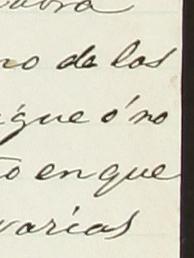 no de los
que ó no
to en que
varias